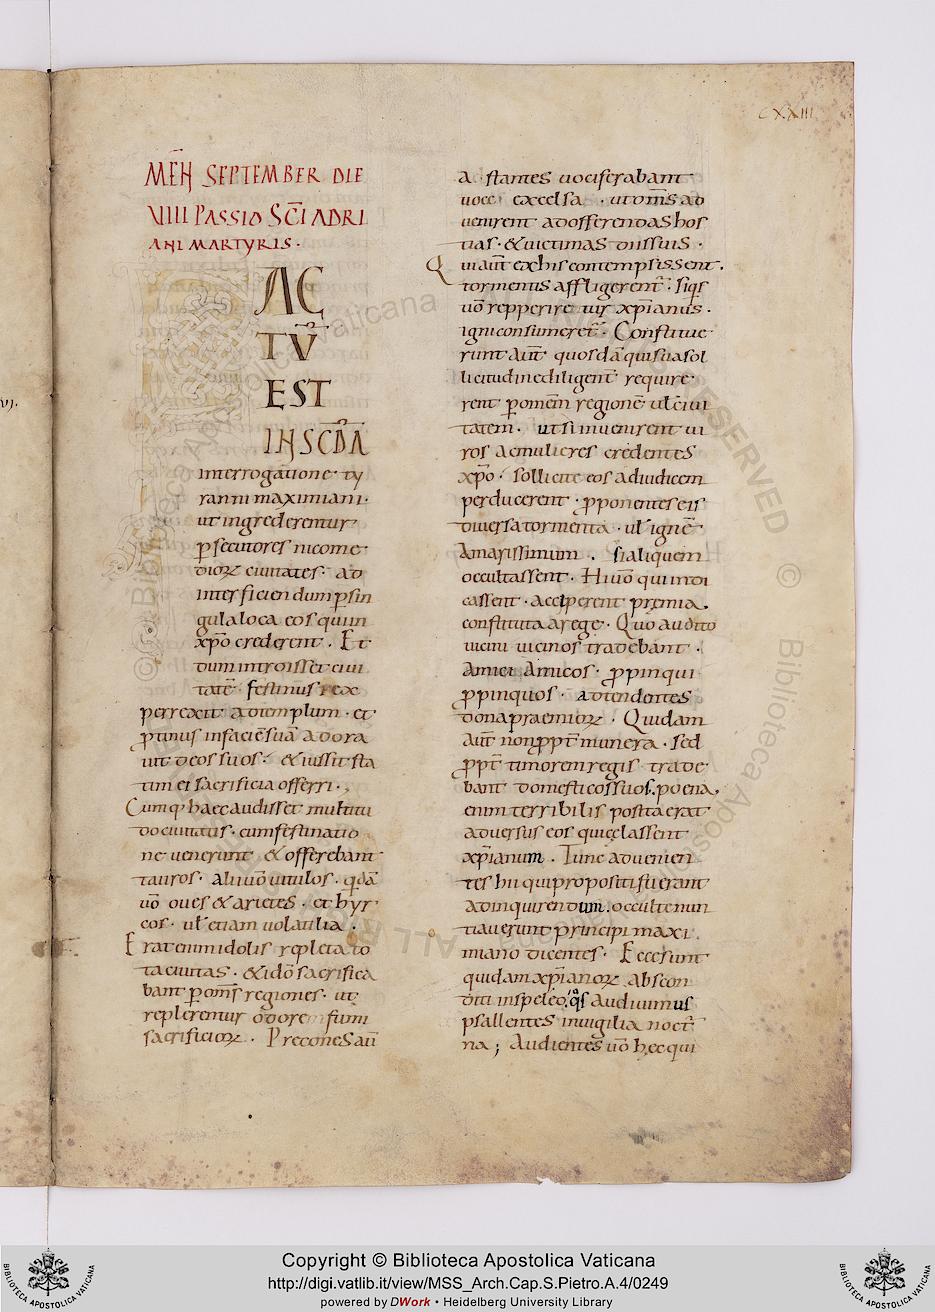 CXXIII
MEN̄ SEPTEMBER DIE
VIIII PASSIO SC̄I ADRI
ANI MARTYRIS·
FAC
TŪ
EST
IN SCD̄A
interrogatione ty
ranni maximiani·
ut ingrederentur
ꝑsecutores nicome
dioꝝ ciuitates· ad
interficiendum ꝑ sin
gula loca eos qui in
xp̄o crederent. Et
dum introisset ciui
tatē festinus rex
perrexit ad templum· et
ꝓtinus in faciē suā adora
uit deos suos· & iussit sta
tim ei sacrificia offerri.,
Cumq; haec audisset multitu
do ciuitatis· cum festinatio
ne uenerunt & offerebant
tauros· alii uō uitulos· qdā
uō oues & arietes· et hyr
cos· ul̄ etiam uolatilia.
Erat enim idolis repleta to
ta ciuitas· & idō sacrifica
bant ꝑ om̄s regiones· ut
replerentur odore fumi
sacrificioꝝ. Precones aū
adstantes uociferabant
uoce excelsa· ut om̄s ad
uenirent ad offerendas hos
tias· & uictimas diis suis·
Qui aūt ex his contempsissent.
tormentis affligerent̄· siqs
uō repperiretur xp̄ianus·
igni consumeret̄· Constitue
runt aūt quosdā qui sua sol
licitudine diligent̄ require
rent ꝑ omem̄ regionē ul̄ ciui
tatem· ut si inuenirent ui
ros ac mulieres credentes
xp̄o· sollicite eos ad iudicem
perducerent· ꝓponentes eis
diuersa tormenta· ul̄ ignē
amarissimum. si aliquem
occultassent· Hii uō qui indi
cassent· acciperent premia.
constituta a rege· Quo audito
uicini uicinos tradebant·
Amici Amicos· ꝓpinqui
ꝓpinquos· adtendentes
dona praemioꝝ· Quidam
aūt non ꝓpt̄ munera· sed
ꝓpt̄ timorem regis trade
bant domesticos suos. poena.
enim terribilis posita erat
aduersus eos qui celassent
xp̄ianum. Tunc aduenien
tes hii qui propositi fuerant
ad inquirendum. occulte nun
tiauerunt principi maxi
miano dicentes· Ecce sunt
quidam xp̄ianoꝝ abscon
diti in speleo, qs audiuimus
psallentes in uigilia noct̄
na; Audientes uō hec qui
Copyright © Biblioteca Apostolica Vaticana
http://digi.vatlib.it/view/MSS_Arch.Cap.S.Pietro.A.4/0249
powered by DWork • Heidelberg University Library